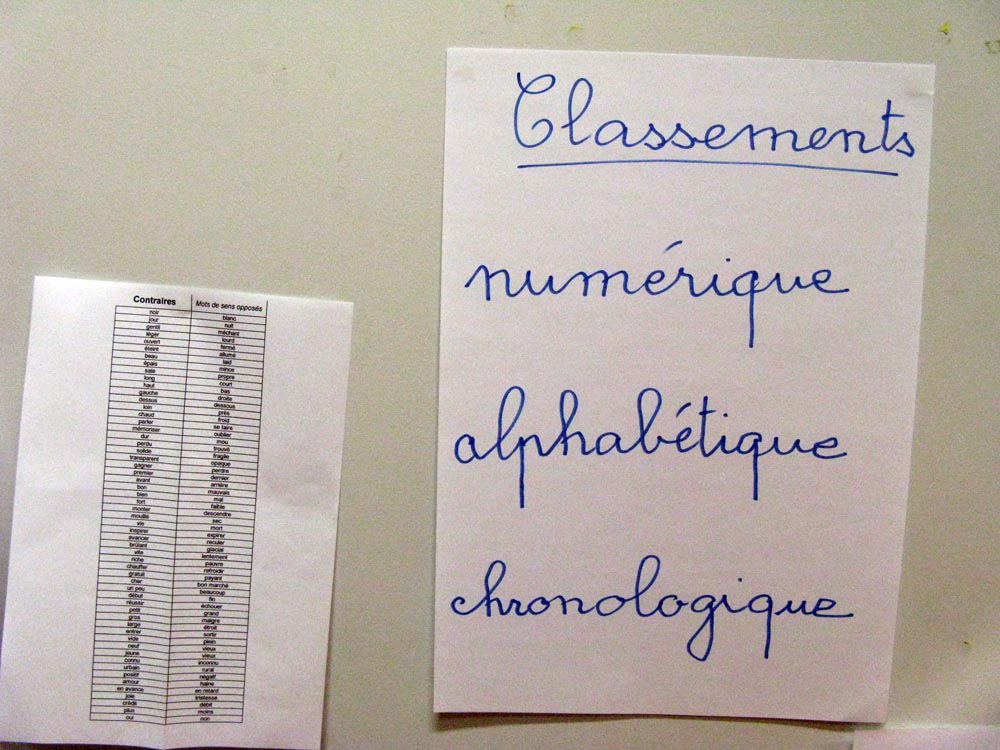 Contraires Mots de sens opposés
noir blanc
jour nuit
gentil méchant
léger lourd
ouvert fermé
éteint allumé
beau laid
épais mince
sale propre
long court
haut bas
gauche droite
dessus dessous
loin près
chaud froid
parler se taire
mémoriser oublier
dur mou
perdu trouvé
solide fragile
transparent opaque
gagner perdre
premier dernier
avant arrière
bon mauvais
bien mal
fort faible
monter descendre
mouillé sec
vie mort
inspirer expirer
avancer reculer
brûlant glacial
vite lentement
riche pauvre
chauffer refroidir
gratuit payant
cher bon marché
un peu beaucoup
début fin
réussir échouer
petit grand
gros maigre
large étroit
entrer sortir
vide plein
neuf vieux
jeune vieux
connu inconnu
urbain rural
positif négatif
amour haine
en avance en retard
joie tristesse
crédit débit
plus moins
oui non
Classements
numérique
alphabétique
chronologique